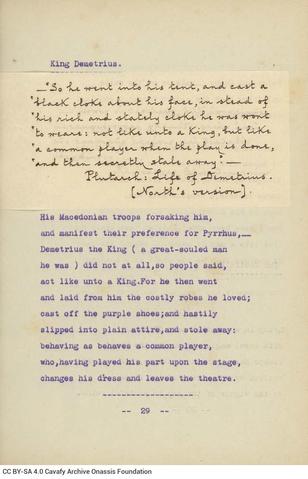 King Demetrius.
—"So he went into his tent, and cast a
"black cloke about his face, in stead of
"his rich and stately cloke he was wont
"to weare: not like unto a King, but like
"a common player when the play is done,
"and then secretly stale away."—
Plutarch: Life of Demetrius.
[North's version].
His Macedonian troops forsaking him,
and manifest their preference for Pyrrhus,—
Demetrius the King ( a great-souled man
he was ) did not at all,so people said,
act like unto a King.For he then went
and laid from him the costly robes he loved;
cast off the purple shoes;and hastily
slipped into plain attire,and stole away:
behaving as behaves a common player,
who,having played his part upon the stage,
changes his dress and leaves the theatre.
-------------------
-- 29 --
CC BY-SA 4.0 Cavafy Archive Onassis Foundation